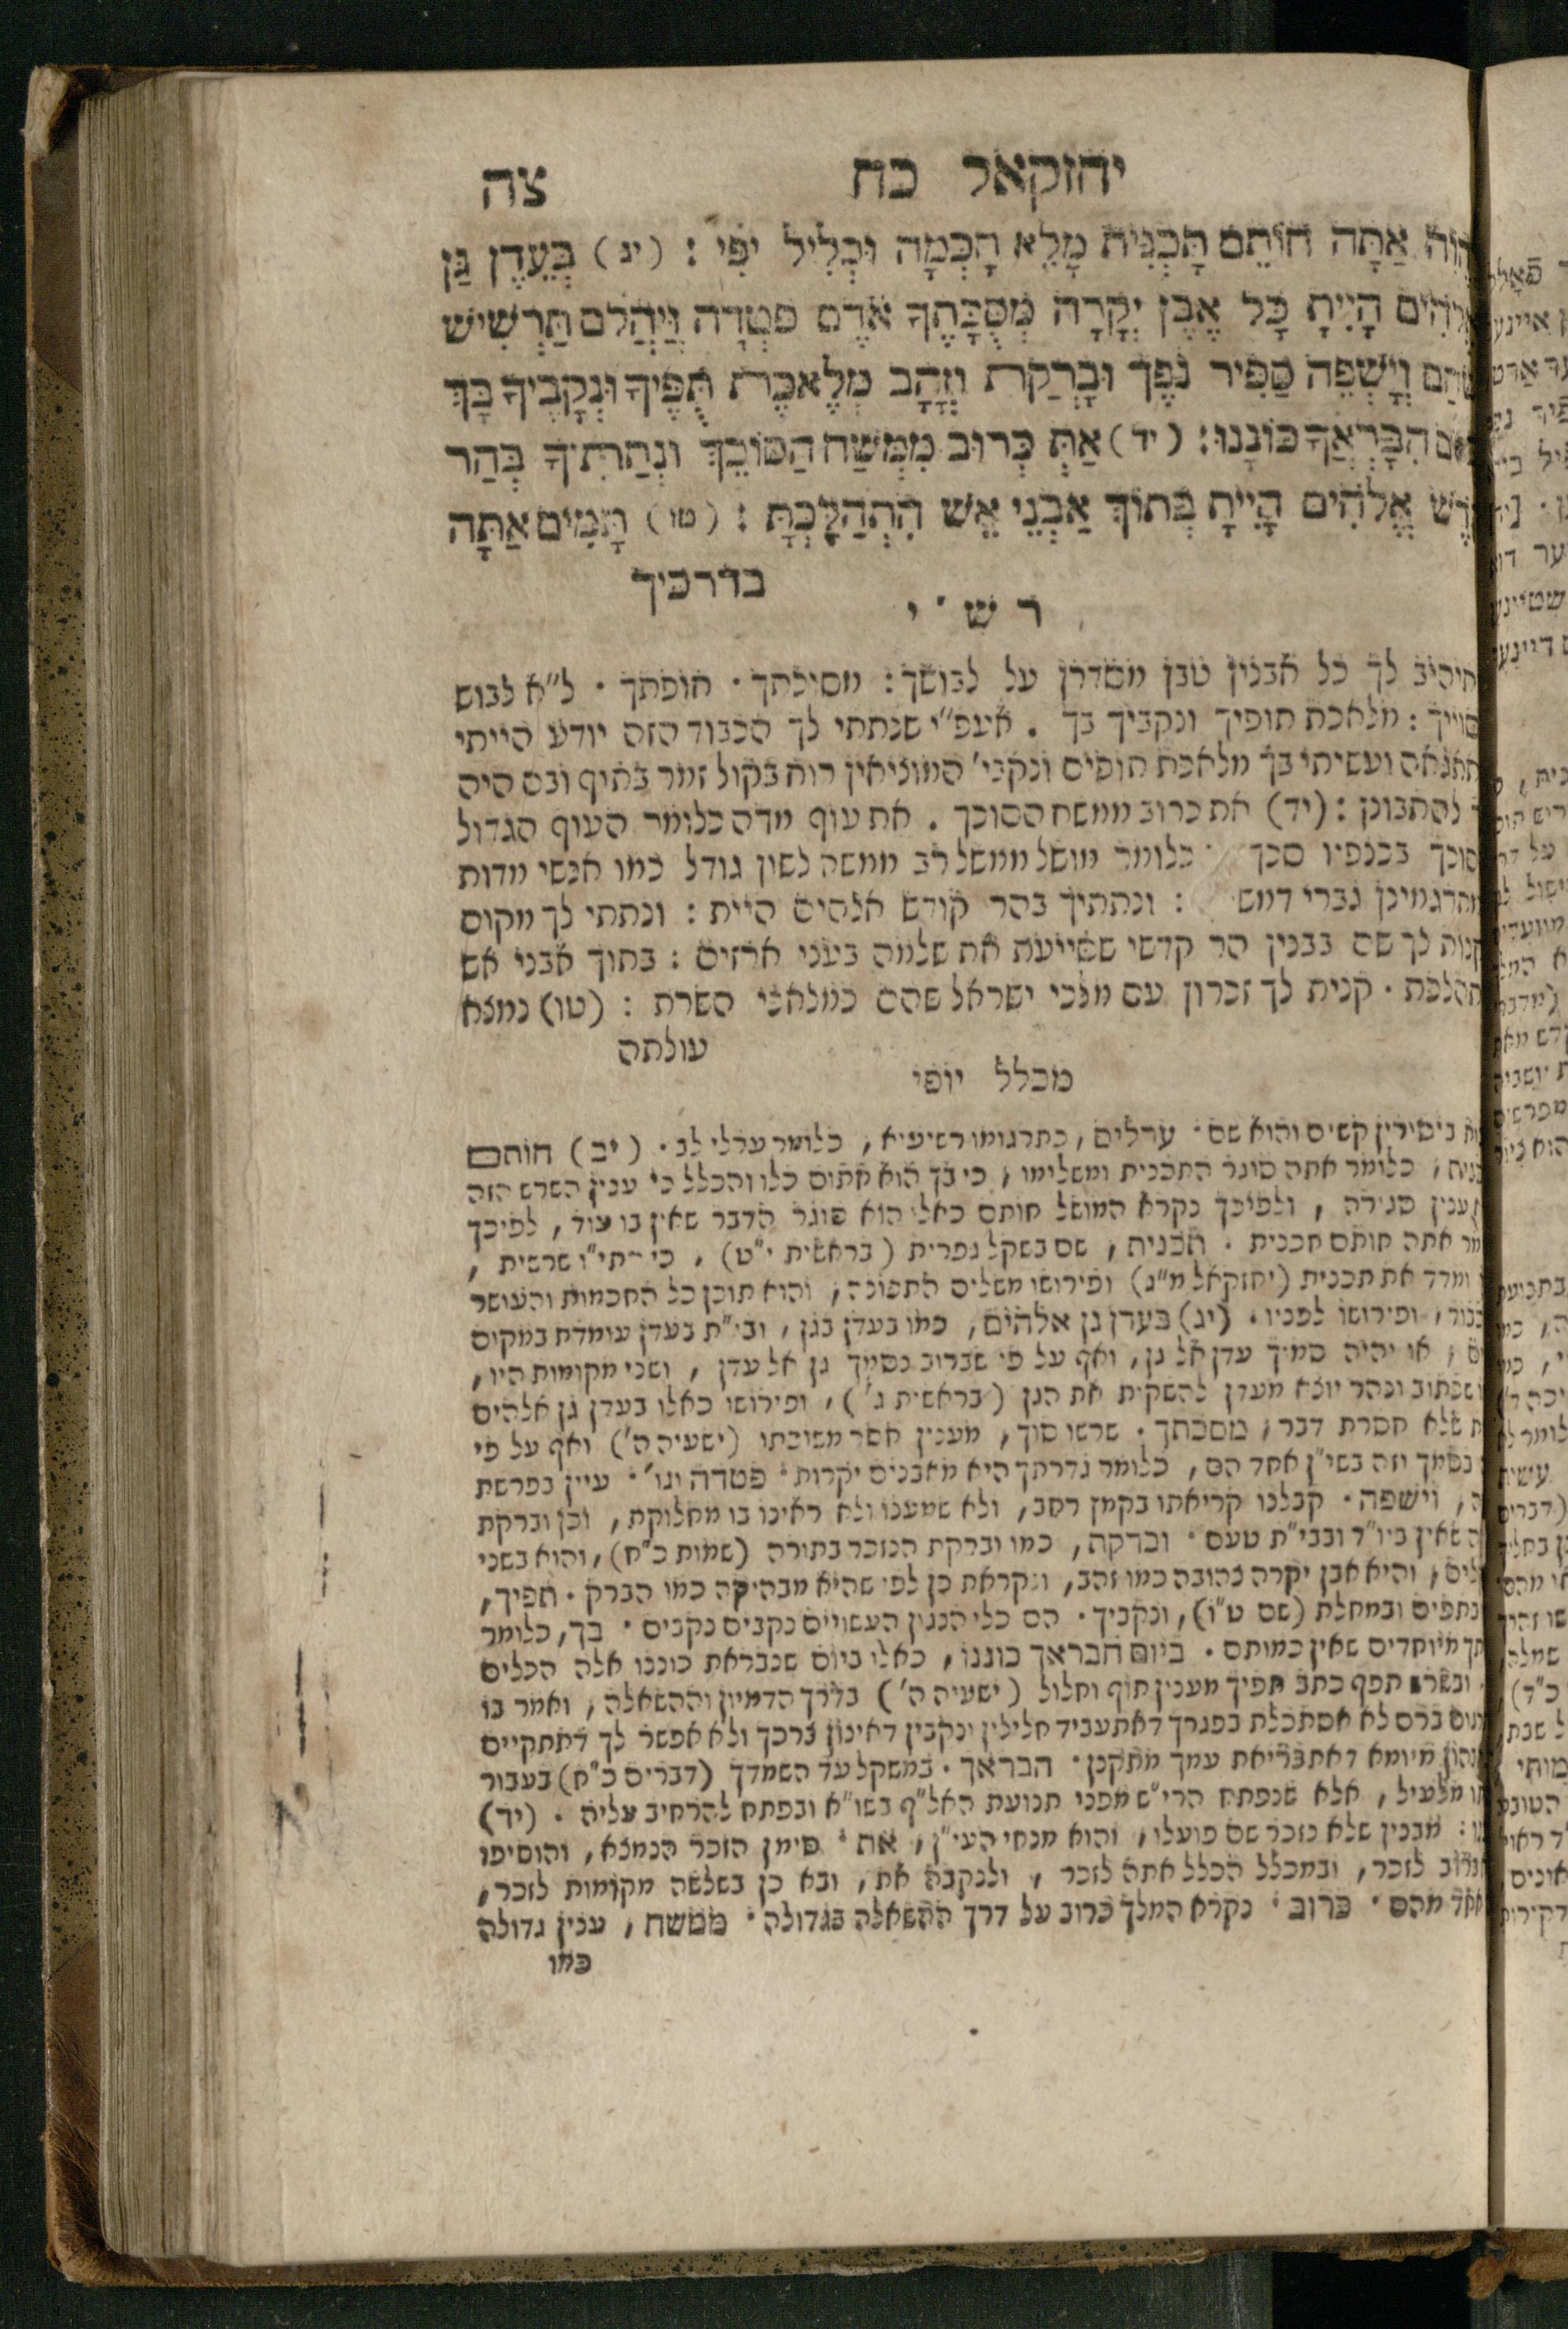 יחזקאל כח צה
אַתָּה חוֹתֵם תָּכְנִית מָלֵא חָכְמָה וּכְלִיל יֹפִי : (יג) בְּעֵדֶן גַּן
אֱלֹהִים הָיִיתָ כָּל אֶבֶן יְקָרָה מְסֻכָתֶךָ אֹדֶם פִּטְדָה וְיָהֲלֹם תַּרְשִׁישׁ
שֹׁהַם וְיָשְׁפֵה סַפִּיר נֹפֶךְ וּבָרְקַת וְזָהָב מְלֶאכֶת תֻּפֶּיךָ וּנְקָבֶיךָ בָּךְ
הִבָּרַאֲךָ כּוֹנָנוּ: (יד) אַתְּ כְּרוּב מִמְשַׁח הַסּוֹכֵךְ וּנְתַתִּיךָ בְּהַר
קֹדֶשׁ אֱלֹהִים הָיִיתָ בְּתוֹךְ אַבְנֵי אֵשׁ הִתְהַלָּכְתָּ : (טו) תָּמִים אַתָּה
בדרכיך
ר ש י
אתיהיב לך כל אבנין טבן מסדרן על לבושך : מסיכתך . חופתך . ל"א לבוש
: מלאכת תופיך ונקביך בך . אעפ"י שנתתי לך הכבוד הזה יודע הייתי
ועשיתי בך מלאכת תופים ונקבי' המוציאין רוח בקול זמר בתיף ובם היה
להתבונן : (יד) את כרוב ממשח הסוכך . את עוף מדה כלומר העוף הגדול
סוכך בכנפיו סכך כלומר מושל ממשל רב ממשה לשון גודל כמו אנשי מדות
מתרגמינן גברי דמש : ונתתיך בהר קודש אלהים היית : ונתתי לך מקום
לך שם בבנין הר קדשי שסייעת את שלמה בעצי ארזים : בתוך אבני אש
התהלכת . קנית לך זכרון עם מלכי ישראל שהם כמלאכי השרת : (טו) נמצא
עולתה
מכלל יופי
ביסורין קשים והוא שם . ערלים , כתרגומו רשיעיא , כלומר ערלי לב . (יב) חותם
תכנית , כלומר אתה סוגר התכנית ומשלימו , כי בך הוא חתום כלו והכלל כי ענין השרש הזה
ענין סגירה , ולפיכך נקרא המושל חותם כאלו הוא סוגר הדבר שאין בו עוד , לפיכך
אתה חותם תכנית . תכנית , שם בשקל גפרית (בראשית י"ט) , כי התי"ו שרשית ,
ומדד את תכנית (יחזקאל מ"ג) ופירושו משלים התכונה , והוא תוכן כל החכמות והעושר
והכבוד , ופירושו לפניו . (יג) בעדן גן אלהים , כמו בעדן בגן , ובי"ת בעדן עומדת במקום
, או יהיה סמיך עדן אל גן , ואף על פי שברוב נסמך גן אל עדן , ושני מקומות היו ,
שכתוב ונהר יוצא מעדן להשקית את הגן (בראשית ב') , ופירושו כאלו בעדן גן אלהים
שלא חסרת דבר , מסכתך . שרשו סוך , מענין הסר משוכתו (ישעיה ה') ואף על פי
בסמך וזה בשי"ן אחד הם , כלומר גדרתך היא מאבנים יקרות . פטדה וגו' . עיין בפרשת
, וישפה . קבלנו קריאתו בקמץ רחב , ולא שמענו ולא ראינו בו מחלוקת , וכן וברקת
שאין ביו"ד ובבי"ת טעם . וברקה , כמו וברקת הנזכר בתורה (שמות כ"ח) , והוא בשני
, והיא אבן יקרה צהובה כמו זהב , ונקראת כן לפי שהיא מבהיקה כמו הברק . תפיך ,
בתפים ובמחלת (שם ט"ו) , ונקביך . הם כלי הנגון העשויים נקבים נקבים . בך , כלומר
מיוחדים שאין כמותם . ביום הבראך כוננו , כאלו ביום שנבראת כוננו אלה הכלים
. ובשרש תפף כתב תפיך מענין תוף וחלול (ישעיה ה') בדרך הדמיון וההשאלה , ואמר בו
ברם לא אסתכלת בפגרך דאתעביד חלילין ונקבין דאינון צרכך ולא אפשר לך דתתקיים
מיומא דאתבריאת עמך מתקנן . הבראך . במשקל עד השמדך (דברים כ"ח) בעבור
מלעיל , אלא שנפתח הרי"ש מפני תנועת האל"ף בשו"א ובפתח להרחיב עליה . (יד)
: מבנין שלא נזכר שם פועלו , והוא מנחי העי"ן , את . סימן הזכר הנמצא , והוסיפו
לזכר , ובמכלל הכלל אתה לזכר , ולנקבה את , ובא כן בשלשה מקומות לזכר ,
אחד מהם . כרוב . נקרא המלך כרוב על דרך ההשאלה בגדולה . ממשח , ענין גדולה
כמו